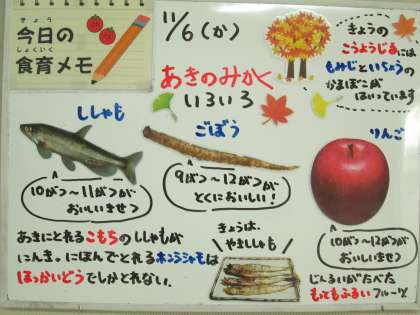 きょう
今日の
しょくいく
食育メモ
11/6(か)
あきのみかく
いろいろ
きょうの
こうようじるには
もみじといちょうの
かまぼこが
はいっています
ししゃも
10がつ〜11がつが
おいしいきせつ
ごぼう
9がつ〜12がつが
とくにおいしい!
りんご
10がつ〜12がつが
おいしいきせつ
あきにとれるこもちのししゃもが
にんき。にほんでとれるホンシシャモは
ほっかいどうでしかとれない。
きょうは、
やきししゃも
じんるいがたべた
もっともふるいフルーツ